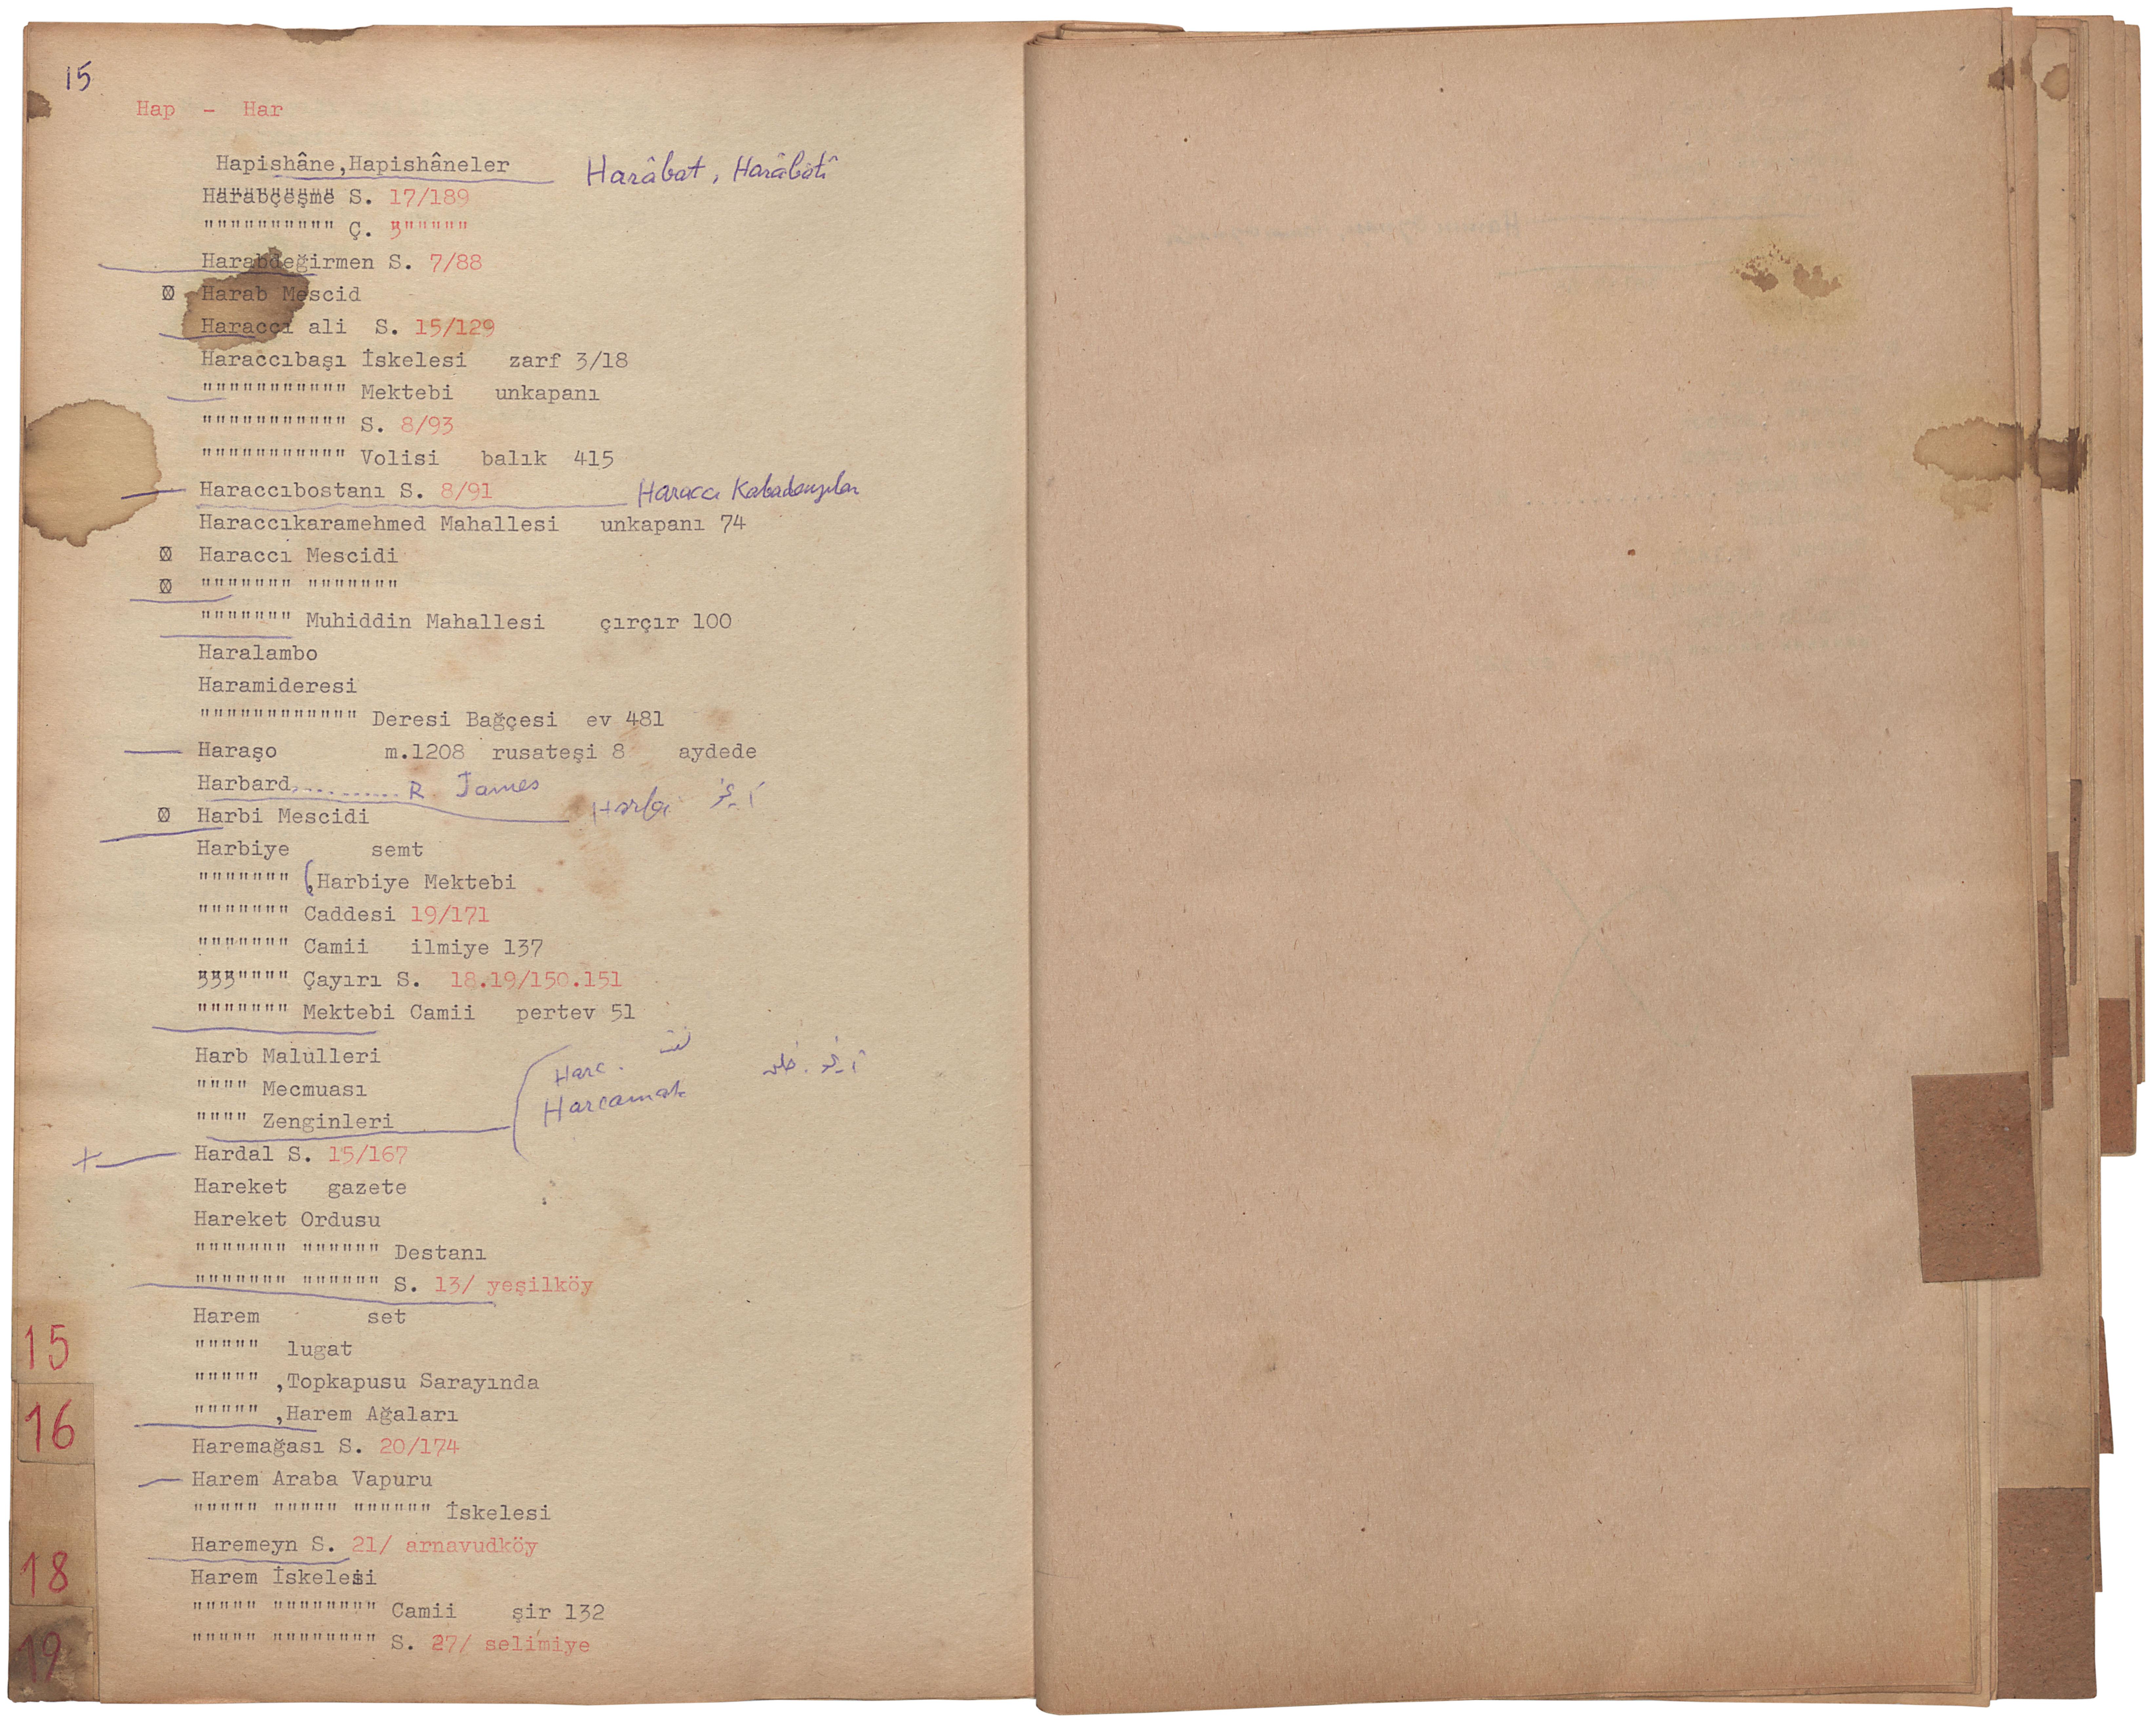 15
Hap - Har
Hapishâne,Hapishâneler Harâbat, Harâbâtî
Harabçeşme S. 17/189
"""""""""" Ç. """""
Harabdeğirmen S. 7/88
Harab Mescid
Haraccı ali S. 15/129
Haraccıbaşı İskelesi zarf 3/18
""""""""""" Mektebi unkapanı
""""""""""" S. 8/93
""""""""""" Volisi balık 415
Haraccıbostanı S. 8/91 Haraccı
Haraccıkaramehmed Mahallesi unkapanı 74
Haraccı Mescidi
""""""" """""""
""""""" Muhiddin Mahallesi çırçır 100
Haralambo
Haramideresi
"""""""""""" Deresi Bağçesi ev 481
Haraşo m.1208 rusateşi 8 aydede
Harbard,.......... R. James
Harbi Mescidi Harbi
Harbiye semt
""""""" ,Harbiye Mektebi
""""""" Caddesi 19/171
""""""" Camii ilmiye 137
""""""" Çayırı S. 18.19/150.151
""""""" Mektebi Camii pertev 51
Harb Malulleri Harc.
"""" Mecmuası Harcamak
"""" Zenginleri
Hardal S. 15/167
Hareket gazete
Hareket Ordusu
""""""" """""" Destanı
""""""" """""" S. 13/ yeşilköy
Harem set
""""" lugat
""""" ,Topkapusu Sarayında
""""" ,Harem Ağaları
Haremağası S. 20/174
Harem Araba Vapuru
""""" """"" """""" İskelesi
Haremeyn S. 21/ arnavudköy
Harem İskelesi
""""" """""""" Camii şir 132
""""" """""""" S. 27/ selimiye
15
16
18
19